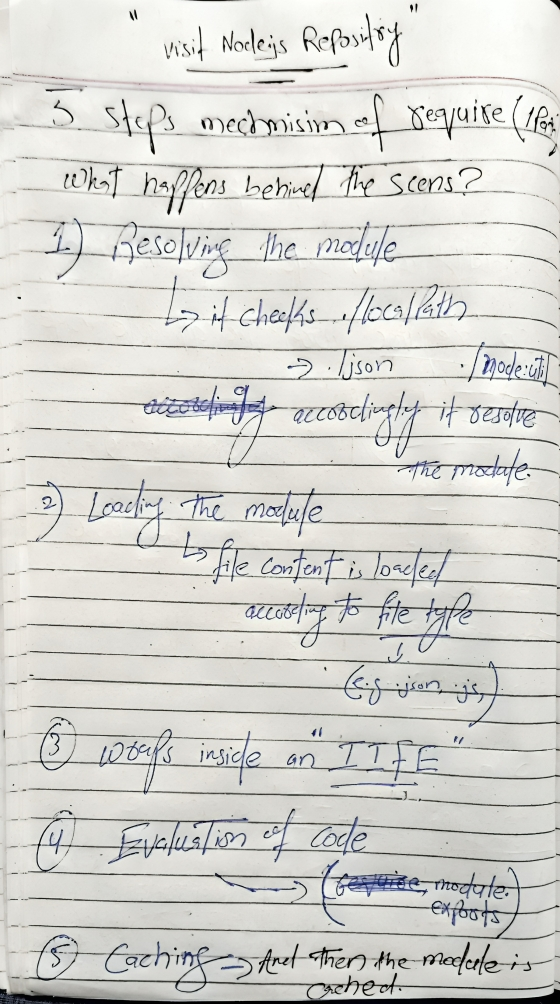 "visit Nodejs Repositry"
5 steps mechmisim of require (/Pa
what happens behind the scens?
1) Resolving the module
↳ it checks ./localPath
→ .json ./node:util
accordingly accordingly it resolve
the module.
2) Loading the module
↳ file content is loaded
according to file type
↓
(e.g .json, .js,)
③ wraps inside an "IIFE"
④ Evaluation of code
→ (require, module.
exports)
⑤ Caching → And then the module is
cached.